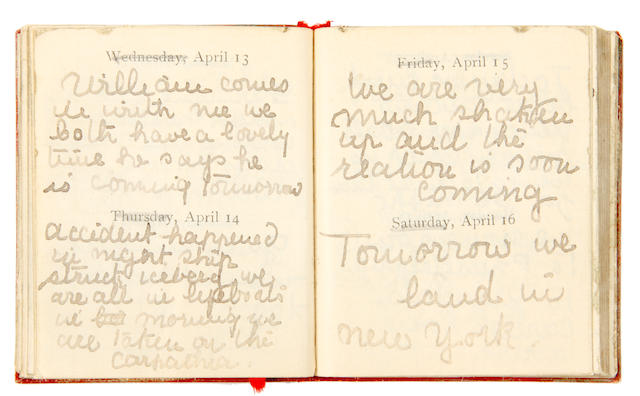 Wednesday, April 13
William comes
in with me we
both have a lovely
time he says he
is coming tomorrow
Thursday, April 14
accident happened
in night ship
struck iceberg we
are all in lifeboats
in morning we
are taken on the
Carpathia.
Friday, April 15
We are very
much shaken
up and the
reation is soon
coming
Saturday, April 16
Tomorrow we
land in
new York.